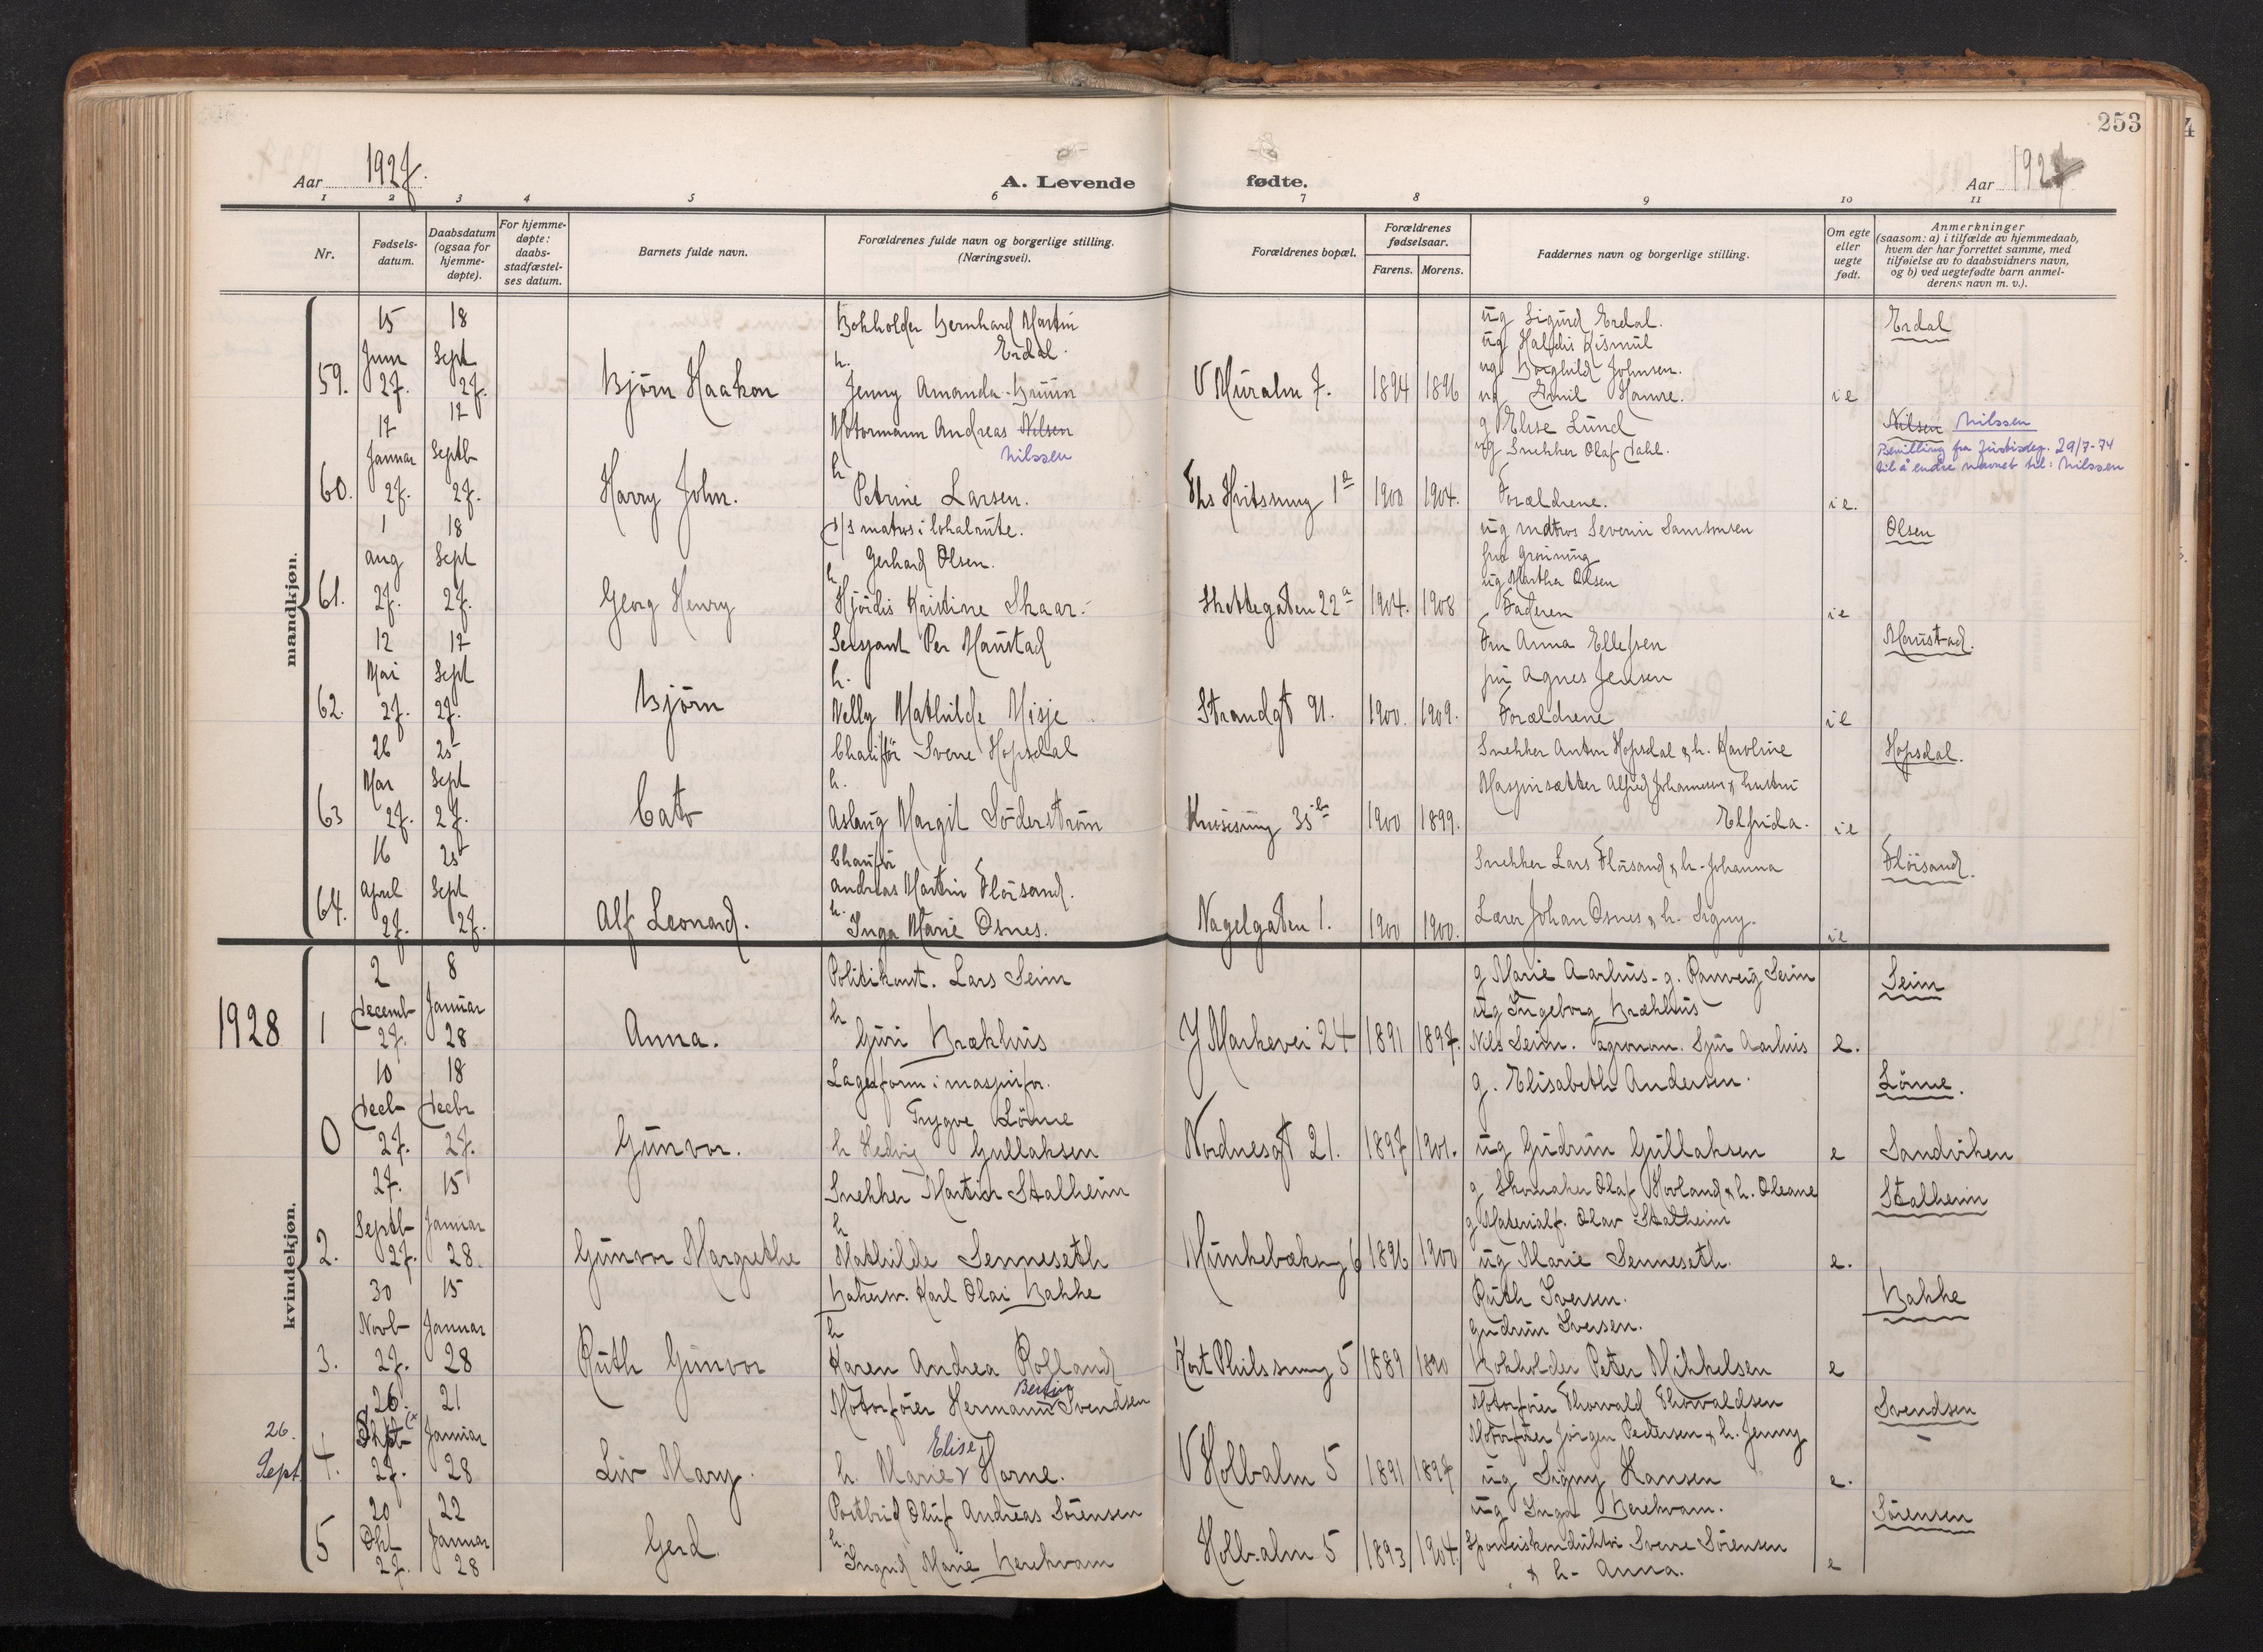 253
Aar 1927.
A. Levende fødte.
Aar 1927
1 2 3 4 5 6 7 8 9 10 11
Nr.
Fødsels-
datum.
Daabsdatum
(ogsaa for
hjemme-
døpte).
For hjemme-
døpte:
daabs-
stadfæstel-
ses datum.
Barnets fulde navn.
Forældrenes fulde navn og borgerlige stilling.
(Næringsvei).
Forældrenes bopæl.
Forældrenes
fødselsaar.
Farens. Morens.
Faddernes navn og borgerlige stilling.
Om egte
eller
uegte
født.
Anmerkninger
(saasom: a) i tilfælde av hjemmedaab,
hvem der har forrettet samme, med
tilføielse av to daabsvidners navn,
og b) ved uegtefødte barn anmel-
derens navn m. v.).
mandkjøn.
15 18 Bokholder Bernhard Martin ug Sigurd Erdal. Erdal
Juni Sept h. Erdal. ug Halfdis Kismul
ug Borghild Johnsen.
59. 27. 27. Bjørn Haakon Jenny Amanda Bruun V Muralm 7. 1894 1896 ug Emil Hamre. ie
17 17 Motormann Andreas Nilsen g Elise Lund Nilsen Nilssen
Januar Septb h Nilssen ug Snekker Olaf Dahl. Bevilling fra Justisdep. 29/7-74
til å endre navnet til: Nilssen
60. 27. 27. Harry John. Petrine Larsen. 1a 1900 1904. Forældrene. ie.
1 18 d/s matros i lokalrute. ug matros Severin Samsonsen Olsen
aug Sept h Gerhard Olsen. fru Grønning
ug Martha Olsen
61. 27. 27. Georg Henry Hjördis Kristine Skaar. Skottegaten 22a 1904. 1908 Faderen ie
12 17 Sersjant Per Maustad Fru Anna Ellefsen Maustad.
Mai Sept h. fru Agnes Jensen
62. 27. 27. Bjørn Nelly Mathilde Misje Strandgt 91. 1900. 1909. Forældrene ie
26 25 Chauffør Sverre Hopsdal Snekker Anton Hopsdal & h. Karoline Hopsdal.
Mar Sept h. Maskinsætter Alfred Johannesen & hustru
63 27. 27. Cato Aslaug Margit Söderström Knøsesmug 35b 1900 1899. Elfrida. ie
16 25 Chauffør Snekker Lars Fløisand & h. Johanna Fløisand.
April Sept Andreas Martin Fløisand.
64. 27. 27. Alf Leonard. h. Inga Marie Osnes. Nagelgaten 1. 1900 1900. Lærer Johan Osnes & h. Signy. ie
kvindekjøn.
2 8 Politikonst. Lars Seim g Marie Aarhus - g. Ranveig Seim Seim
Decemb Januar h ug Ingeborg Brækhus
1928 1 27. 28 Anna. Guri Brækhus J Markevei 24 1891 1897. Nils Seim. agronom. Sjur Aarhus e.
10 18 Lagerform i maskinfor. g. Elisabeth Andersen. Lönne.
Decb Decbr Trygve Lönne
0 27. 27. Gunvor. h Hedvig Gullaksen Nordnesgt 21. 1897 1901. ug Gudrun Gullaksen e Sandviken
27. 15 Snekker Martin Stalheim g Skomaker Olaf Hovland & h. Oleane Stalheim
Septb Januar h g Materialf. Olav Stalheim
2. 27. 28. Gunvor Margrethe Mathilde Senneseth Munkebæksmg 6 1896 1900 ug Marie Senneseth. e.
30 15 Bakersv. Karl Olai Bakke Ruth Iversen. Bakke
Novb Januar h Gudrun Iversen.
3. 27. 28 Ruth Gunvor Karen Andrea Rolland Kort Philssmug 5 1889 1890 Bokholder Peter Mikkelsen e
26. 21 Motorfører Hermann Svendsen Motorfører Thorvald Thorvaldsen Svendsen
26. Januar Elise Motorfører Jørgen Pedersen & h. Jenny
Sept 4. 27. 28 Liv Mary. h. Marie Horne. V Holbalm 5 1891 1897 ug Signy Hansen e.
20 22 Postbud Oluf Andreas Sörensen ug Inga Berekvam. Sörensen
Okt Januar h
5 27. 28 Gerd Ingrid Marie Berekvam Holb.alm 5 1893 1904. Sporveiskonduktør Sverre Sörensen
& h. Anna. e